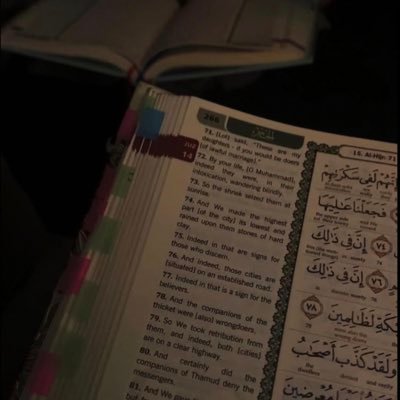 266
15. Al-Hijr: 71
JUZ
71. [Lot] said, "These are my
daughters - if you would be doers
[of lawful marriage]."
72. By your life, [O Muhammad],
indeed they were, in their
intoxication, wandering blindly.
73. So the shriek seized them at
sunrise.
74. And We made the highest
part [of the city] its lowest and
rained upon them stones of hard
clay.
75. Indeed in that are signs for
those who discern.
76. And indeed, those cities are
[situated] on an established road.
77. Indeed in that is a sign for the
believers.
78. And the companions of the
thicket were [also] wrongdoers.
79. So We took retribution from
them, and indeed, both [cities]
are on a clear highway.
80. And certainly did the
companions of Thamud deny the
messengers.
81. And We
لَفِي سَكْرَتِهِمْ
فَجَعَلْنَا عَالِيَهَا
٧٤ إِنَّ فِي ذَٰلِكَ
٧٦ إِنَّ فِي ذَٰلِكَ
لَظَالِمِينَ ٧٨
وَلَقَدْ كَذَّبَ أَصْحَابُ